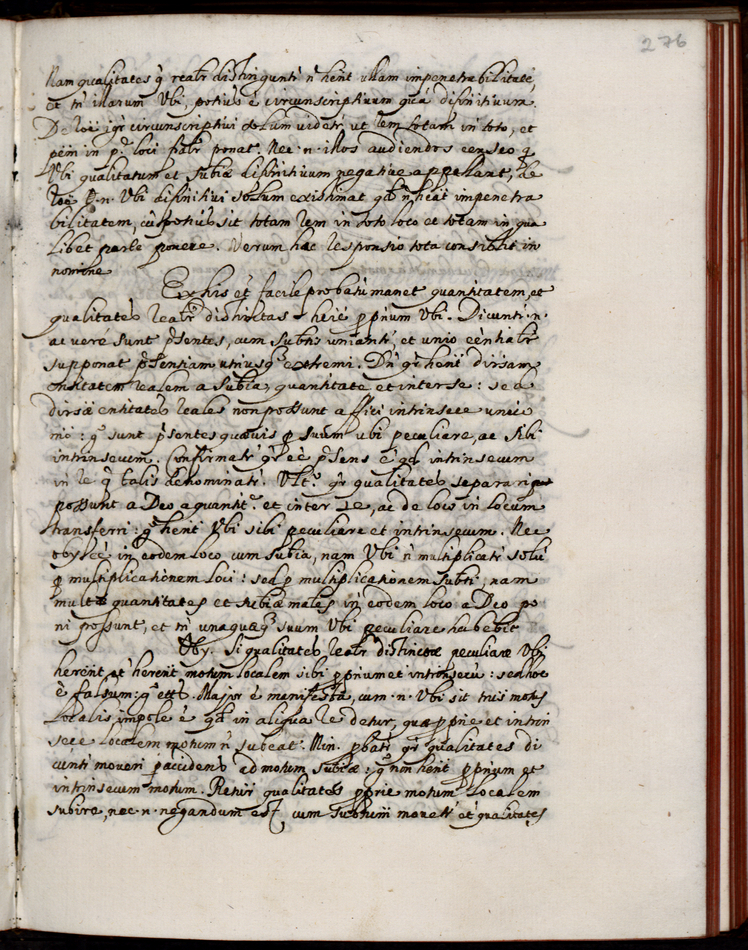 276
Nam qualitates q̃ realr̃ distinguntr̃ ñ hent ullam impenetrabilitatẽ,
et tñ illarum Ubi, potius ẽ circunscriptiuum quã difinitiuum.
De roẽ igr̃ circunscriptiui solum uidetr̃ ut rem totam in toto, et
pẽm in p.ᵉ loci ponat. Nec .n. illos audiendos censeo q̃
Ubi qualitatum et subiæ difinitiuum negatiue appellant, de
roẽ .n. Ubi difinitiui solum existimat qd̃ ñ heat impenetra
bilitatem, cũ potius sit totam rem in toto loco et totam in qua
libet parte ponere. Verum hæc responsio tota consistit in
nomine
Ex his et facile probatũ manet quantitatem, et
qualitates realr̃ distinctas herẽ pprium Ubi. Dicuntr̃ .n.
ac veré sunt p̃sentes, cum subtis uniantr̃, et unio eentialr̃
supponat p̃sentiam utriusq̃ extremi. Dñt gr̃ heñt diuersam
entitatem realem a subia, quantitate et inter se: sed
diuersæ entitates reales non possunt affici intrinsece unico
mõ: gͦ sunt p̃sentes quæuis p suum ubi peculiare, ac sibi
intrinsecum. Confirmatr̃ gr̃ eẽ p̃sens ẽ qd̃ intrinsecum
in re q̃ talis denominatr̃. Ult.ͦ gr̃ qualitates separari
possunt a Deo a quantit.ᵉ et inter se, ac de loco in locum
transferri: gͦ heñt Ubi sibi peculiare et intrinsecum. Nec
obest eẽ in eodem loco cum subia, nam Ubi ñ multiplicatr̃ solũ
p multiplicationem loci: sed p multiplicationem subti, nam
multæ quantitates et subiæ males in eodem loco a Deo po
ni possunt, et tñ unaquæq̃ suum Ubi peculiare habebit
Oby. Si qualitates realr̃ distinctæ peculiare Ubi
herent, et herent motum localem sibi pprium et intrinsecũ: sed hoc
ẽ falsum: gͦ etc. Major ẽ manifesta, cum .n. Ubi sit tr̃mus motus
localis, impole ẽ qd̃ in aliqua re detur, quæ pprie et intrin
sece localem motum ñ subeat. Min. pbatr̃ gr̃ qualitates di
cuntr̃ moueri p accidens ad motum subiæ: gͦ non heñt pprium et
intrinsecum motum. Retur̃ qualitates pprie motum localem
subire, nec .n. negandum est, cum subtum mouetr̃ et qualitates